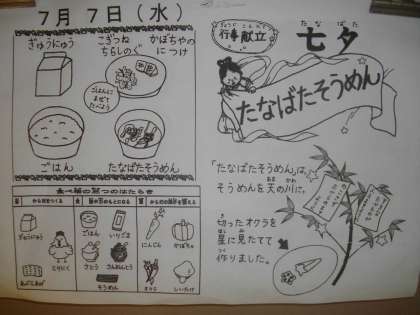 7月 7日（水）
ぎゅうにゅう
こぎつね
ちらしのぐ
かぼちゃの
につけ
ごはんに
まぜて
たべよう
ごはん
たなばたそうめん
食べ物の三つのはたらき
ぎゅうにゅう
とりにく
あぶらあげ
ごはん
いりごま
さとう
さんおんとう
そうめん
にんじん
かぼちゃ
オクラ
しいたけ
ぎょうじ こんだて
行事献立
たなばた
七夕
たなばたそうめん
「たなばたそうめん」は、
そうめんを天の川に。
切ったオクラを
星に見たてて
作りました。